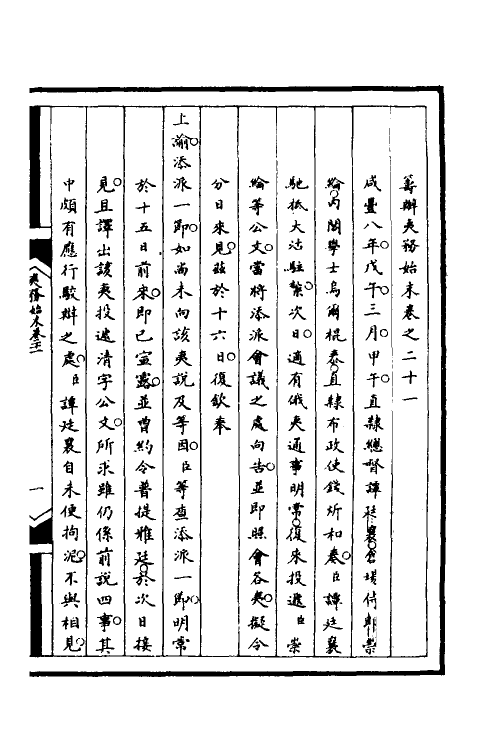 籌辦夷務始末卷之二十一
咸豐八年戊午三月甲午直隸總督譚廷襄倉場侍郎崇
綸內閣學士烏爾棍泰直隸布政使錢炘和奏臣譚廷襄
馳抵大沽駐紮次日適有俄夷通事明常復來投遞臣崇
綸等公文當將添派會議之處向告並即照會各夷擬令
分日來見茲於十六日復欽奉
上諭添派一節如尚未向該夷說及等因臣等查添派一節明常
於十五日前來即已宣露並曾約令普提雅廷於次日接
見且譯出該夷投遞清字公文所求雖仍係前說四事其
中頗有應行駁辦之處臣譚廷襄自未便拘泥不與相見
夷務始末卷二十一
一